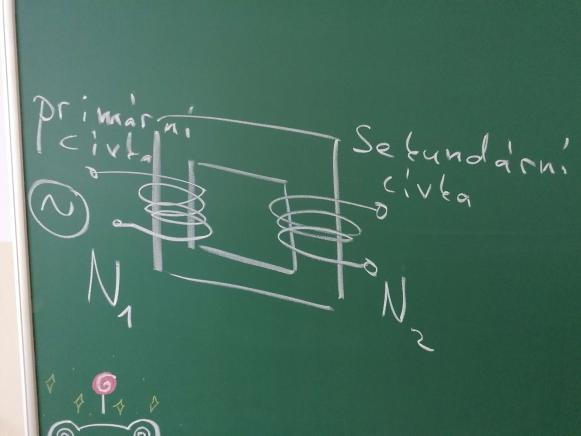 primární
cívka
Sekundární
cívka
~
N1
N2